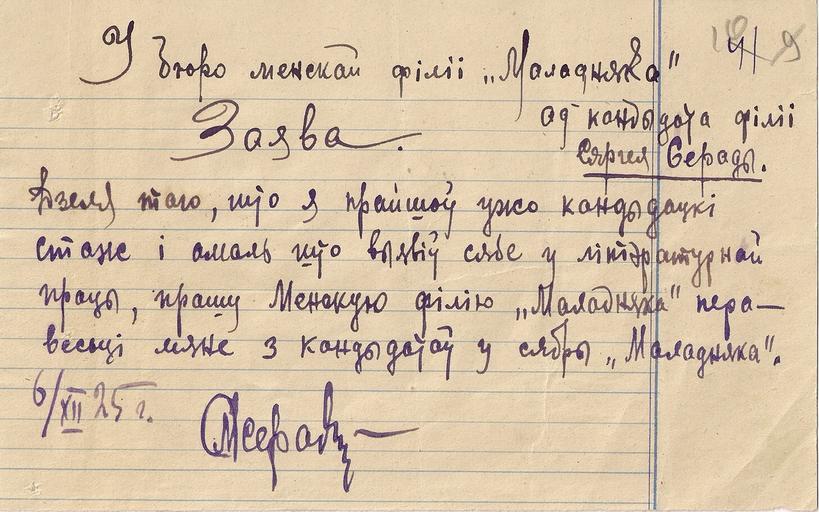 У бюро менскай філіі „Маладняка"
ад кандыдата філіі
Сяргея Серады.
Заява.
Дзеля таго, што я прайшоў ужо кандыдацкі
стаж і амаль што выявіў сябе у літэратурнай
працы, прашу Менскую філію „Маладняка" пера—
весьці мяне з кандыдатаў у сябры „Маладняка".
6/XII 25 г.